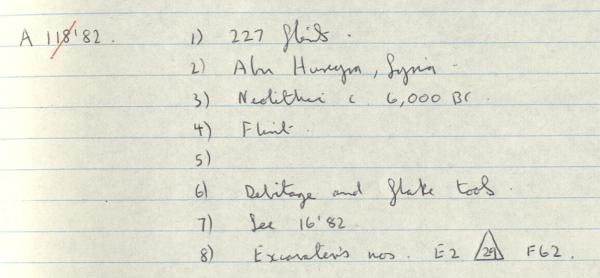 A 118'82. 1) 227 flints.
2) Abu Hureyra, Syria.
3) Neolithic c. 6,000 BC.
4) Flint.
5)
6) Debitage and flake tools.
7) See 16'82
8) Excavater's nos. E2 29 F62.